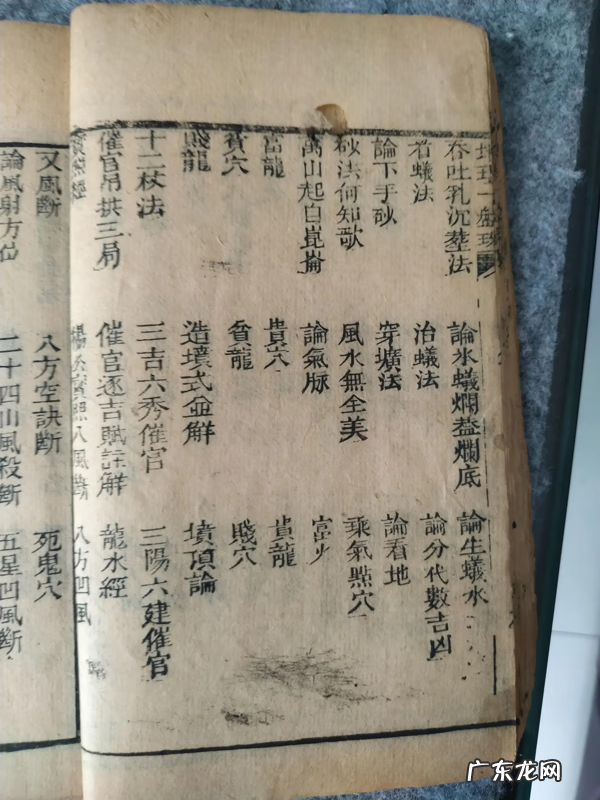 吞吐乳沉塟法 論水蟻爛葢爛底 論生蟻水
看蟻法 治蟻法 論分代數吉凶
論下手砂 穿壙法 論看地
砂法何知歌 風水無全美 乘氣點穴
萬山起自崑崙 論氣脉 富穴
富龍 貴穴 貴龍
貧穴 貧龍 賤穴
賤龍 造墳式並解 墳頂論
十二杖法 三吉六秀催官 三陽六建催官
催官吊拱三局 催官逐吉賦註解 龍水經
照經 楊公寶照八風斷 八方凹風
又風斷 八方空訣斷 死鬼穴
論風射方位 二十四山風殺斷 五星凹風斷
广东龙网